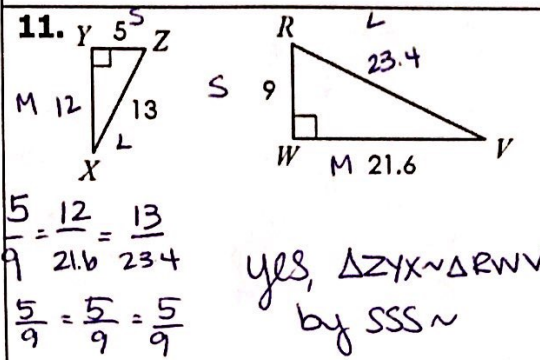 11. Y 5 S Z
M 12 13 L
X
R L 23.4
S 9
W M 21.6 V
5/9 = 12/21.6 = 13/23.4
5/9 = 5/9 = 5/9
yes, ΔZYX~ΔRWV
by SSS~